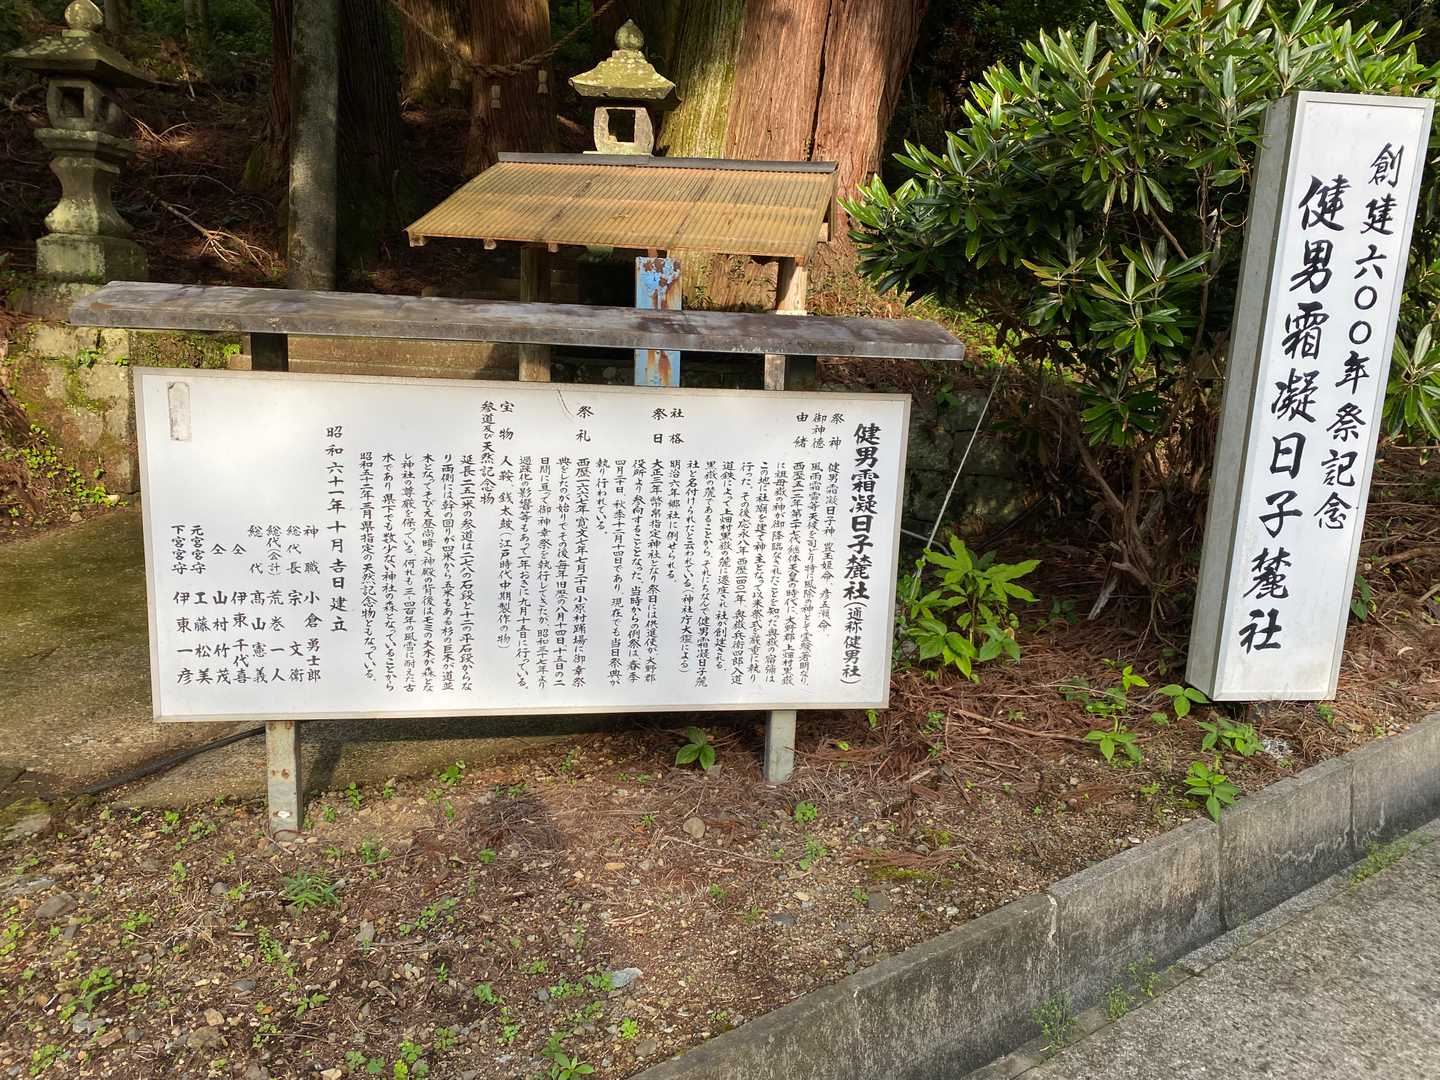 創建六〇〇年祭記念
健男霜凝日子麓社
健男霜凝日子麓社(通称健男社)
祭神 健男霜凝日子神 豊玉姫命、彦五瀬命、
御神徳 風雨霜雪等天候を司どり特に風除の神として霊験著明なり、
由緒 西歴五二二年第二十七代継体天皇の時代に大野郡上畑村黒嶽
に祖母嶽の神が御降臨なされたことを知った奥嶽の宿彌は
この地に社廟を建て神主となって以来祭式を厳重に執り
行った。その後応永八年西歴一四〇二年、奥嶽兵衛四郎入道
道鉄によって上畑村黒嶽の麓に遷座され社が創建される。
黒嶽の麓であることから、それにちなんで健男霜凝日子麓
社と名付けられたと云われている(神社庁大鑑による)
社格 明治六年郷社に列せられる。
祭日 大正三年幣帛指定神社となり祭日には供進使が大野郡
役所より参向することとなった。当時からの例祭は、春季
四月二十日、秋季十二月十四日であり、現在でも当日祭典が
執り行われている。
祭礼 西歴一六六七年、寛文七年七月二十日小原村踊場に御幸祭
典をしたのが始りでその後、毎年旧歴の八月十四日十五日の二
日間に亘って御神幸祭を執行してきたが、昭和三十七年より
過疎化の影響等もあって二年おきに九月十五日に行っている。
宝物 人鞍、銭太鼓(江戸時代中期製作の物)
参道及び天然記念物
延長二五一米の参道は二七八の石段と十二の平石段からな
り両側には幹の回りが四米から五米もある杉の巨木が並
木となってそびえ昼尚暗く神殿の背後はモミの大木が森とな
し神社の尊厳を保っている。何れも三・四百年の風雪に耐えた古
木であり、県下でも数少ない神社の森となっていることから
昭和五十二年三月県指定の天然記念物ともなっている。
昭和六十一年十月吉日建立
神職 小倉勇士郎
総代長 宗文衛
総代(会計) 荒巻一人
総代 髙山憲義
仝 伊東千代喜
仝 山村竹茂
元宮宮守 工藤松美
下宮宮守 伊東一彦